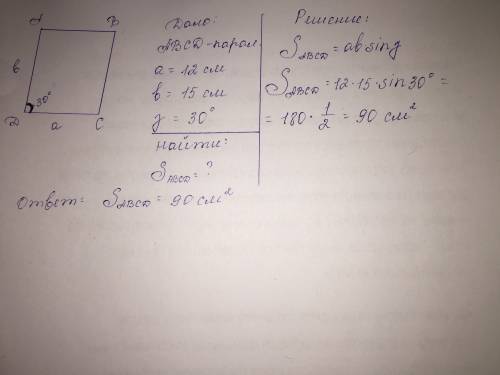 A B
в
30°
D a C
Дано:
ABCD-парал.
a = 12 см
в = 15 см
y = 30°
найти:
S ABCD = ?
Решение:
S ABCD = ab sin y
S ABCD = 12 · 15 · sin 30° =
= 180 · 1/2 = 90 см²
ответ: S ABCD = 90 см²